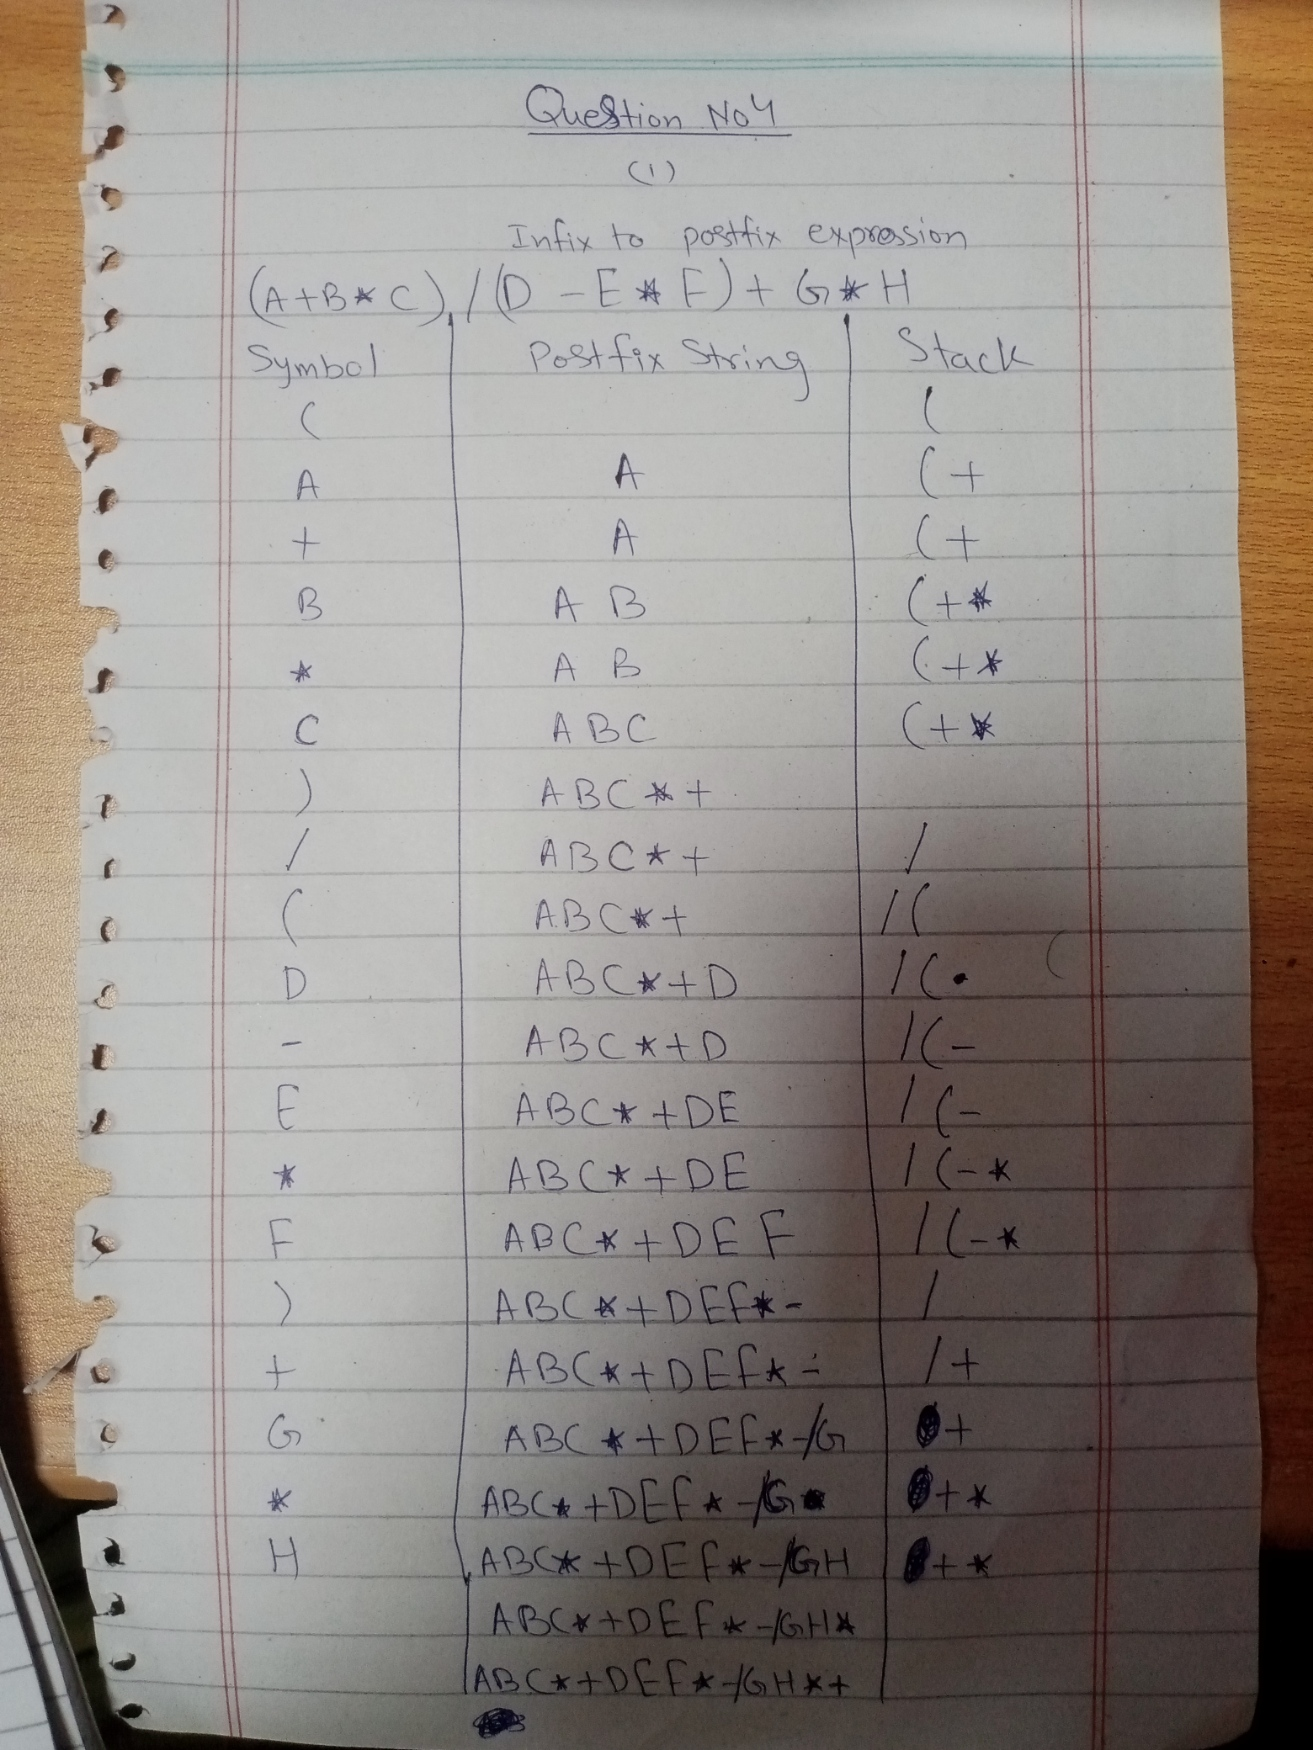 Question No 4
(1)
Infix to postfix expression
(A+B*C) / (D - E * F) + G * H
Symbol Postfix String Stack
( (
A A (+
+ A (+
B A B (+*
* A B (+*
C ABC (+*
) ABC*+
/ ABC*+ /
( ABC*+ /(
D ABC*+D /(
- ABC*+D /(-
E ABC*+DE /(-
* ABC*+DE /(-*
F ABC*+DEF /(-*
) ABC*+DEF*- /
+ ABC*+DEF*- /+
G ABC*+DEF*-/G +
* ABC*+DEF*-/G +*
H ABC*+DEF*-/GH +*
ABC*+DEF*-/GH*
ABC*+DEF*-/GH*+